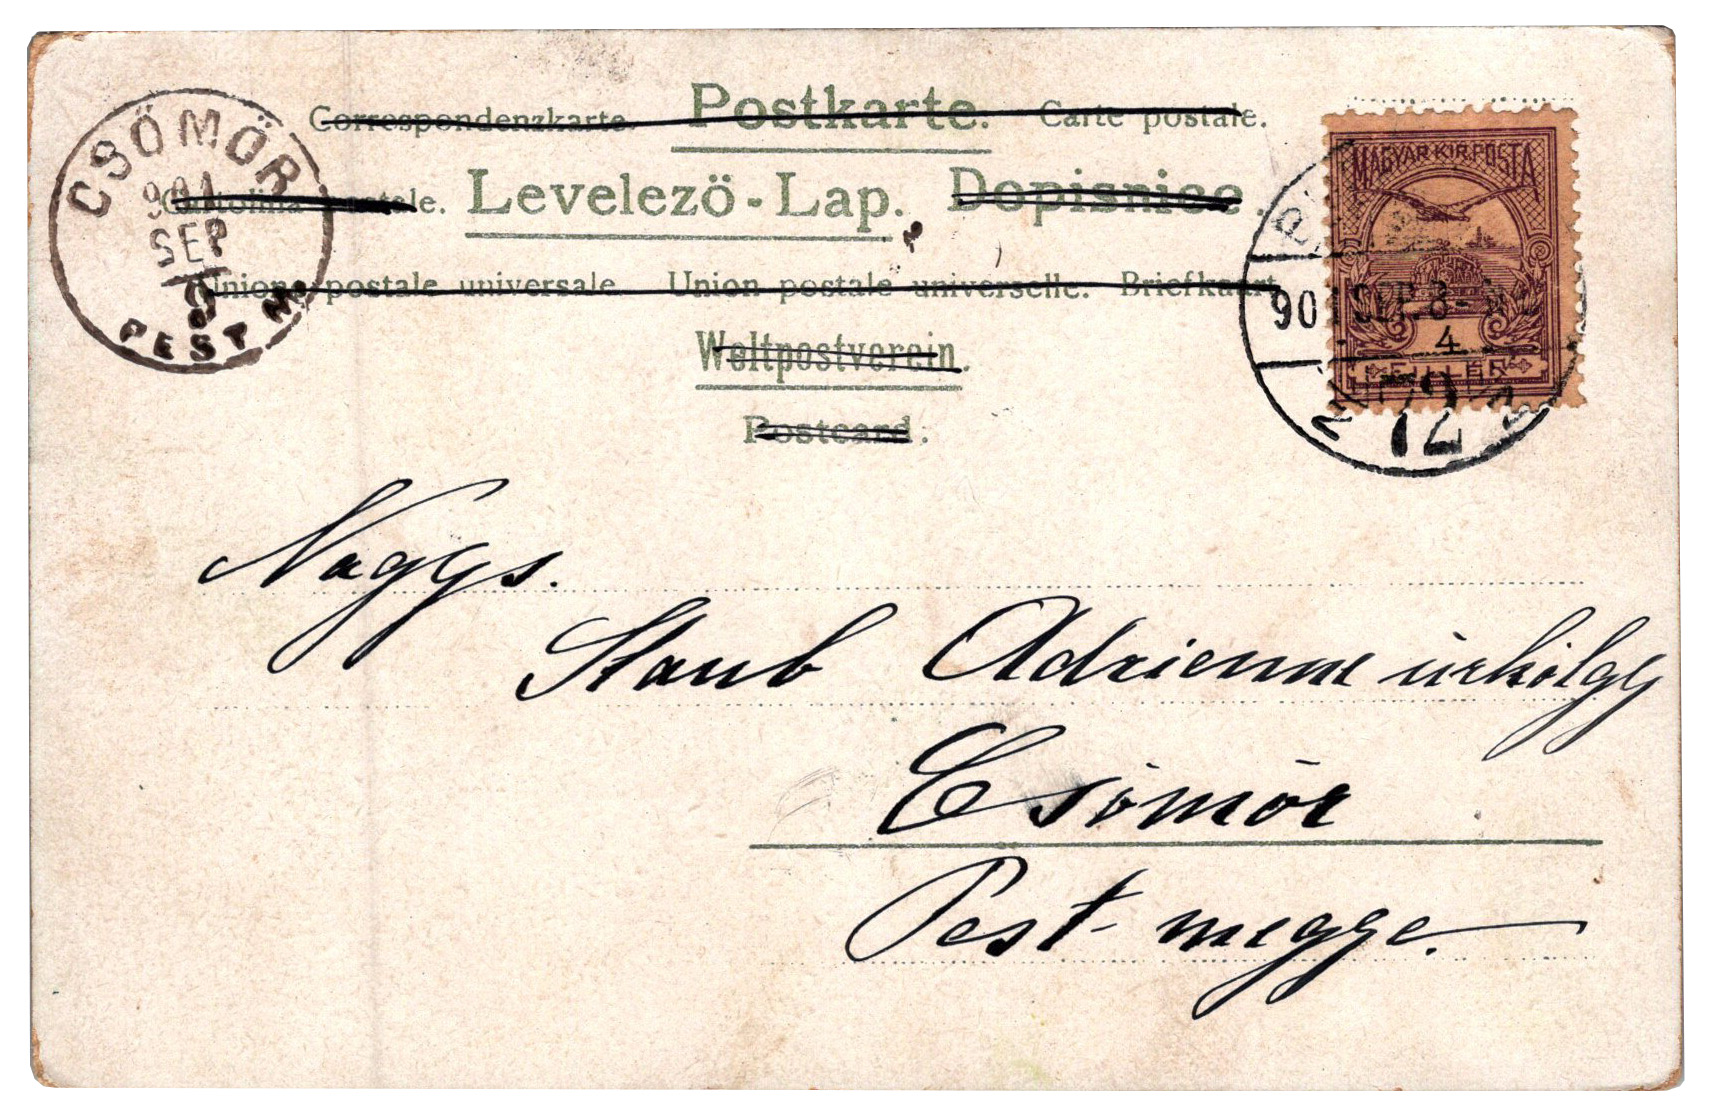 Correspondenzkarte. Postkarte. Carte postale.
Cartolina postale. Levelező-Lap. Dopisnice.
Unione postale universale. Union postale universelle. Briefkaart
Weltpostverein.
Postcard.
CSÖMÖR
901
SEP
8
PEST M.
MAGYAR KIR. POSTA
901 SEP. 8
4
FILLÉR
72
Naggs.
Staub Adrienne úrhölgy
Csömör
Pest-megye.